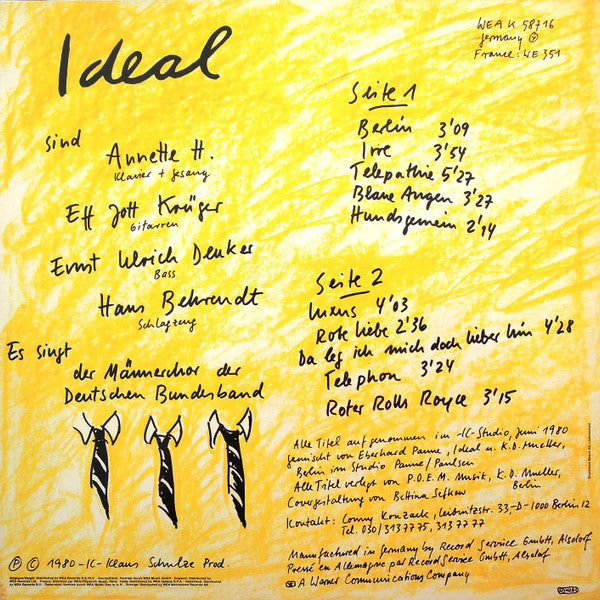 Ideal
WEA K 58716
Germany Ⓟ
France: WE 351
sind
Annette H.
Klavier + Gesang
Eff Jott Krüger
Gitarren
Ernst Ulrich Deuker
Bass
Hans Behrendt
Schlagzeug
Es singt
der Männerchor der
Deutschen Bundesband
Seite 1
Berlin 3'09
Irre 3'54
Telepathie 5'27
Blaue Augen 3'27
Hundsgemein 2'14
Seite 2
Luxus 4'03
Rote Liebe 2'36
Da leg ich mich doch lieber hin 4'28
Telephon 3'24
Roter Rolls Royce 3'15
Alle Titel aufgenommen im -IC-Studio, Juni 1980
gemischt von Eberhard Panne, Ideal u. K.D. Mueller,
Berlin im Studio Panne/Paulsen
Alle Titel verlegt von P.O.E.M. Musik, K.D. Mueller,
Berlin
Covergestaltung von Bettina Sefkow
Kontakt: Conny Konzack, Leibnitzstr. 33, D-1000 Berlin 12
Tel. 030/313 77 75, 313 77 77
Manufactured in Germany by Record Service GmbH, Alsdorf
Pressé en Allemagne par Record Service GmbH, Alsdorf
A Warner Communications Company
Ⓟ © 1980 -IC- Klaus Schulze Prod.